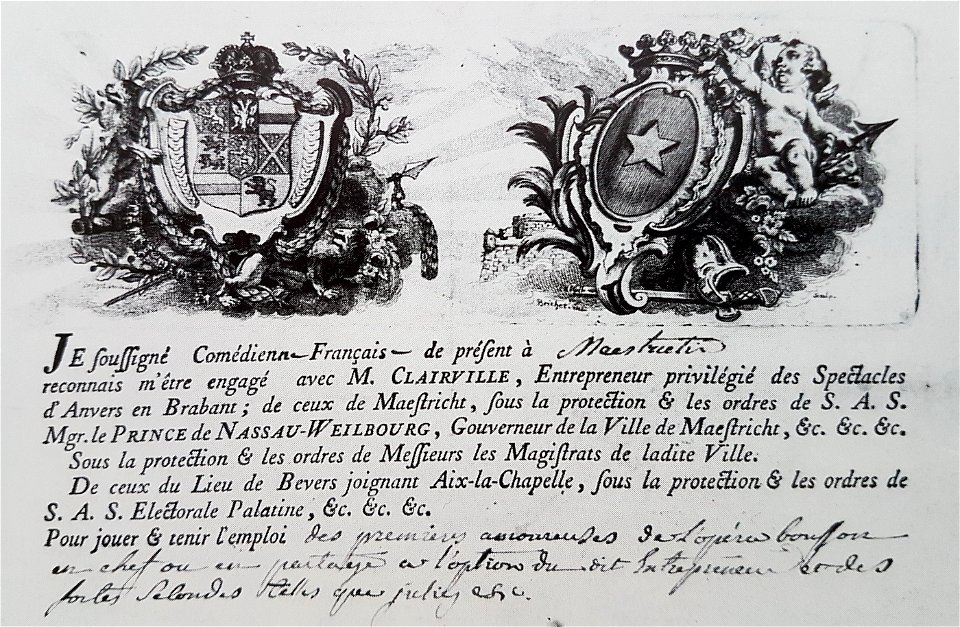 Boucher
JE souſſigné Comédienn Français de préſent à Maestricht
reconnais m'être engagé avec M. CLAIRVILLE, Entrepreneur privilégié des Spectacles
d'Anvers en Brabant; de ceux de Maeſtricht, ſous la protection & les ordres de S. A. S.
Mgr. le PRINCE de NASSAU-WEILBOURG, Gouverneur de la Ville de Maeſtricht, &c. &c. &c.
Sous la protection & les ordres de Meſſieurs les Magiſtrats de ladite Ville.
De ceux du Lieu de Bevers joignant Aix-la-Chapelle, ſous la protection & les ordres de
S. A. S. Electorale Palatine, &c. &c. &c.
Pour jouer & tenir l'emploi des premieres amoureuses de L'opéra bouffon
en chef ou en partage a l'option du dit Entrepreneur et des
fortes Secondes telles que julies &c.